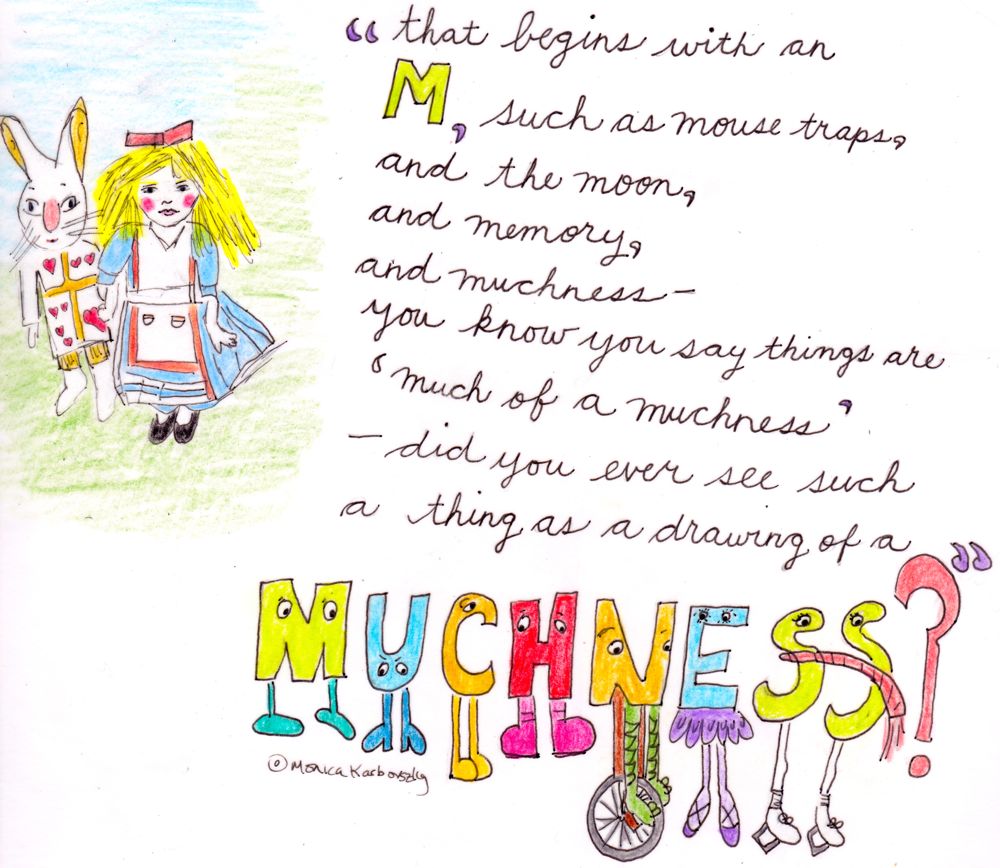 “that begins with an
M, such as mouse traps,
and the moon,
and memory,
and muchness—
you know you say things are
‘much of a muchness’
—did you ever see such
a thing as a drawing of a
MUCHNESS?”
© Monica Karbovszky